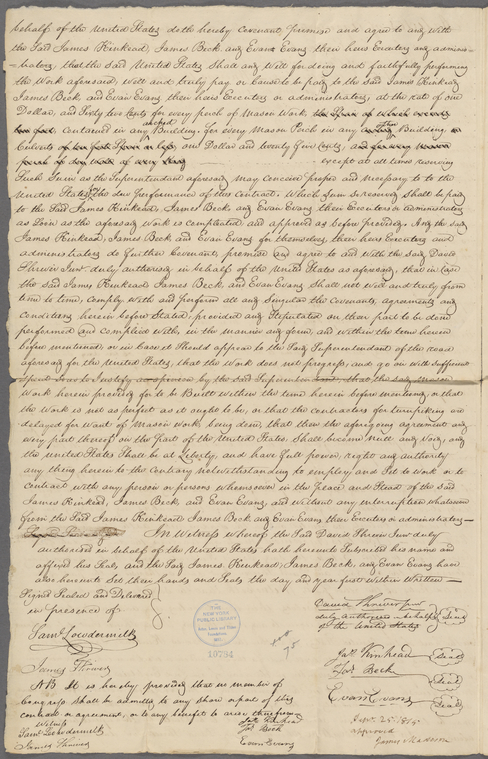 behalf of the United States doth hereby covenant promise and agree to and with
the said James Kinkead, James Beck and Evan Evans their heirs Executors and adminis-
-trators, that the said United States shall and will for doing and faithfully performing
the Work aforesaid, well and truly pay or cause to be paid to the said James Kinkead
James Beck and Evan Evans their heirs Executors or administrators, at the rate of one
Dollar, and Sixty two Cents for every perch of Mason Work
contained in any arched Building, for every Mason Perch in any other Building or
Culverts one Dollar and twenty five Cents,
except at all times reserving
Such Sum as the Superintendent aforesaid may conceive proper and necessary to
the United States for the due performance of this contract. Which sum so reserved shall be paid
to the said James Kinkead, James Beck and Evan Evans their Executors or administrators
as soon as the aforesaid work is compleated and approved as before provided. And the said
James Kinkead, James Beck and Evan Evans for themselves, their heirs Executors and
administrators do further Covenant, promise and agree to and with the said David
Shriver Junr duly authorised in behalf of the United States as aforesaid, that in case
the said James Kinkead James Beck and Evan Evans shall not well and truly from
time to time, comply with and perform all and Singular the Covenants, agreements and
conditions herein before stated, provided and stipulated on their part to be done
performed and complied with, in the manner and form, and within the time herein
before mentioned or in case it should appear to the said Superintendent of the road
aforesaid for the United States, that the work does not progress, and go on with sufficient
Work herein provided for to be Built within the time herein before mentioned, or that
the Work is not as perfect as it ought to be, or that the contractors for turnpiking are
delayed for want of Mason work being done, that then the aforegoing agreement and
every part thereof on the part of the United States shall become null and void, and
the United States shall be at Liberty, and have full power, right and authority
any thing herein to the contrary notwithstanding to employ and set to work or to
contract with any person or persons whomsoever in the place and stead of the said
James Kinkead, James Beck, and Evan Evans, and without any interruption whatsoever
from the said James Kinkead James Beck and Evan Evans their Executors or administrators—
In Witness whereof the said David Shriver Junr duly
authorised in behalf of the United States hath hereunto Subscribed his name and
affixed his Seal, and the said James Kinkead, James Beck, and Evan Evans have
also hereunto Set their hands and Seals the day and year first within Written—
Signed Sealed and Delivered
in presence of
David Shriver Junr
duly authorised in behalf
of the United States
Seal
Saml Lowdermilk
James Shriver
Jas Kinkead
Seal
Jas Beck
Seal
Evan Evans
Seal
THE
NEW YORK
PUBLIC LIBRARY
10794
NB It is hereby provided that no member of
Congress shall be admitted to any share or part of this
contract or agreement, or to any benefit to arise therefrom
Witness
Saml Lowdermilk
James Shriver
Jas Kinkead
Jas Beck
Evan Evans
Sept. 25th 1815
approved
James Madison